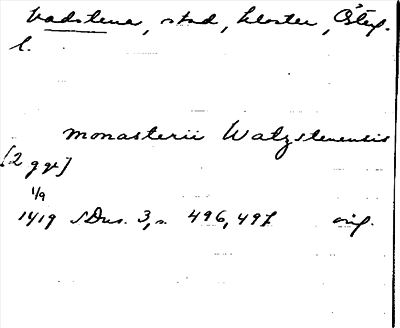 Vadstena, stad, kloster, Östg.
l.
monasterii Watzstenensis
[2 ggr]
1/9
1419 SDns. 3, s. 496, 497 orig.